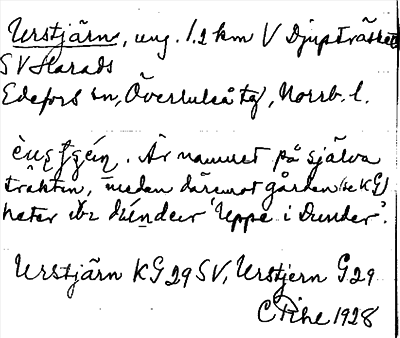 Urstjärn, ung. 1.2 km V Djupträsket
SV Harads
Edefors sn, Överluleå tg, Norrb. l.
Är namnet på själva
trakten, medan däremot gården (se KG)
heter "Uppe i Dunder".
Urstjärn KG 29 SV, Urstjern G 29
C Pihl 1928